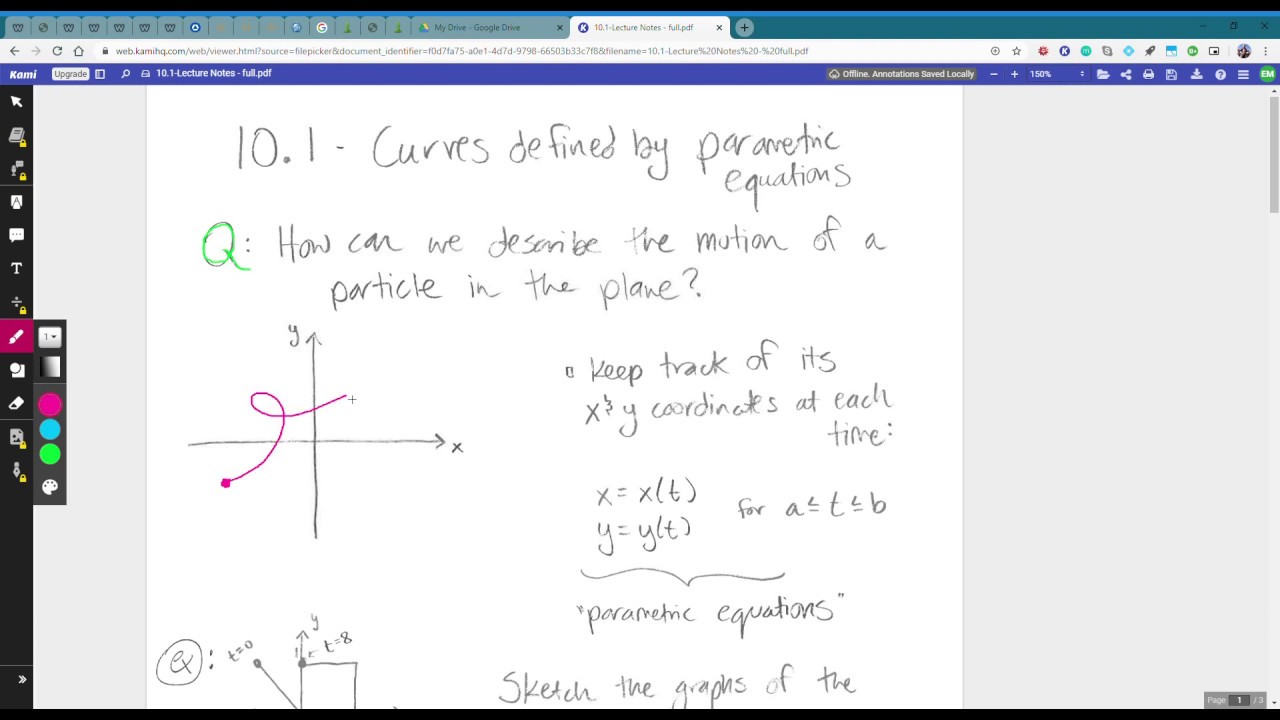 My Drive - Google Drive
10.1-Lecture Notes - full.pdf
web.kamihq.com/web/viewer.html?source=filepicker&document_identifier=f0d7fa75-a0e1-4d7d-9798-66503b33c7f8&filename=10.1-Lecture%20Notes%20-%20full.pdf
Kami
Upgrade
10.1-Lecture Notes - full.pdf
Offline. Annotations Saved Locally
150%
EM
10.1 - Curves defined by parametric
equations
Q: How can we describe the motion of a
particle in the plane?
y
x
Keep track of its
x & y coordinates at each
time:
x = x(t)
y = y(t)
for a ≤ t ≤ b
"parametric equations"
Ex:
t=0
y
t=8
Sketch the graphs of the
1
Page 1 / 3